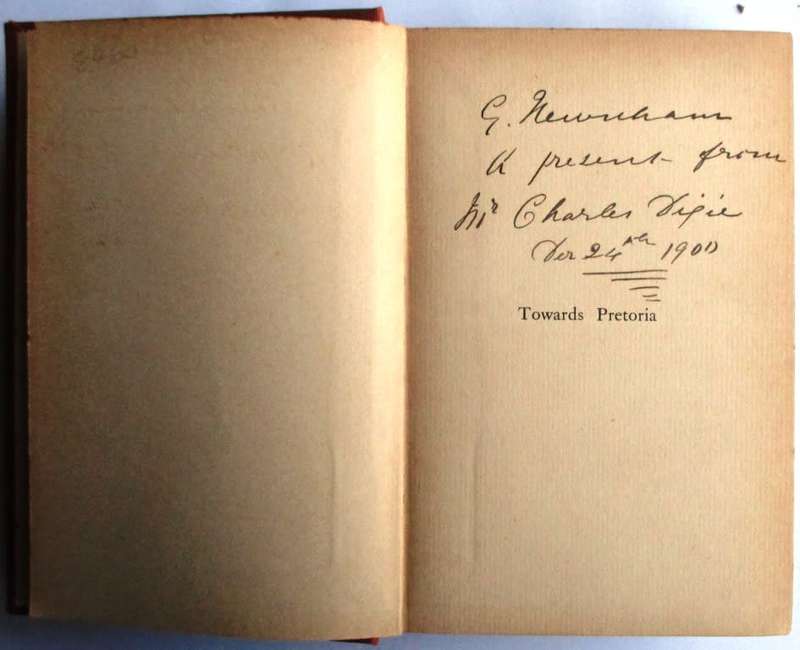 G. Newnham
A present from
Mr Charles Dixie
Dec 24th 1900
Towards Pretoria